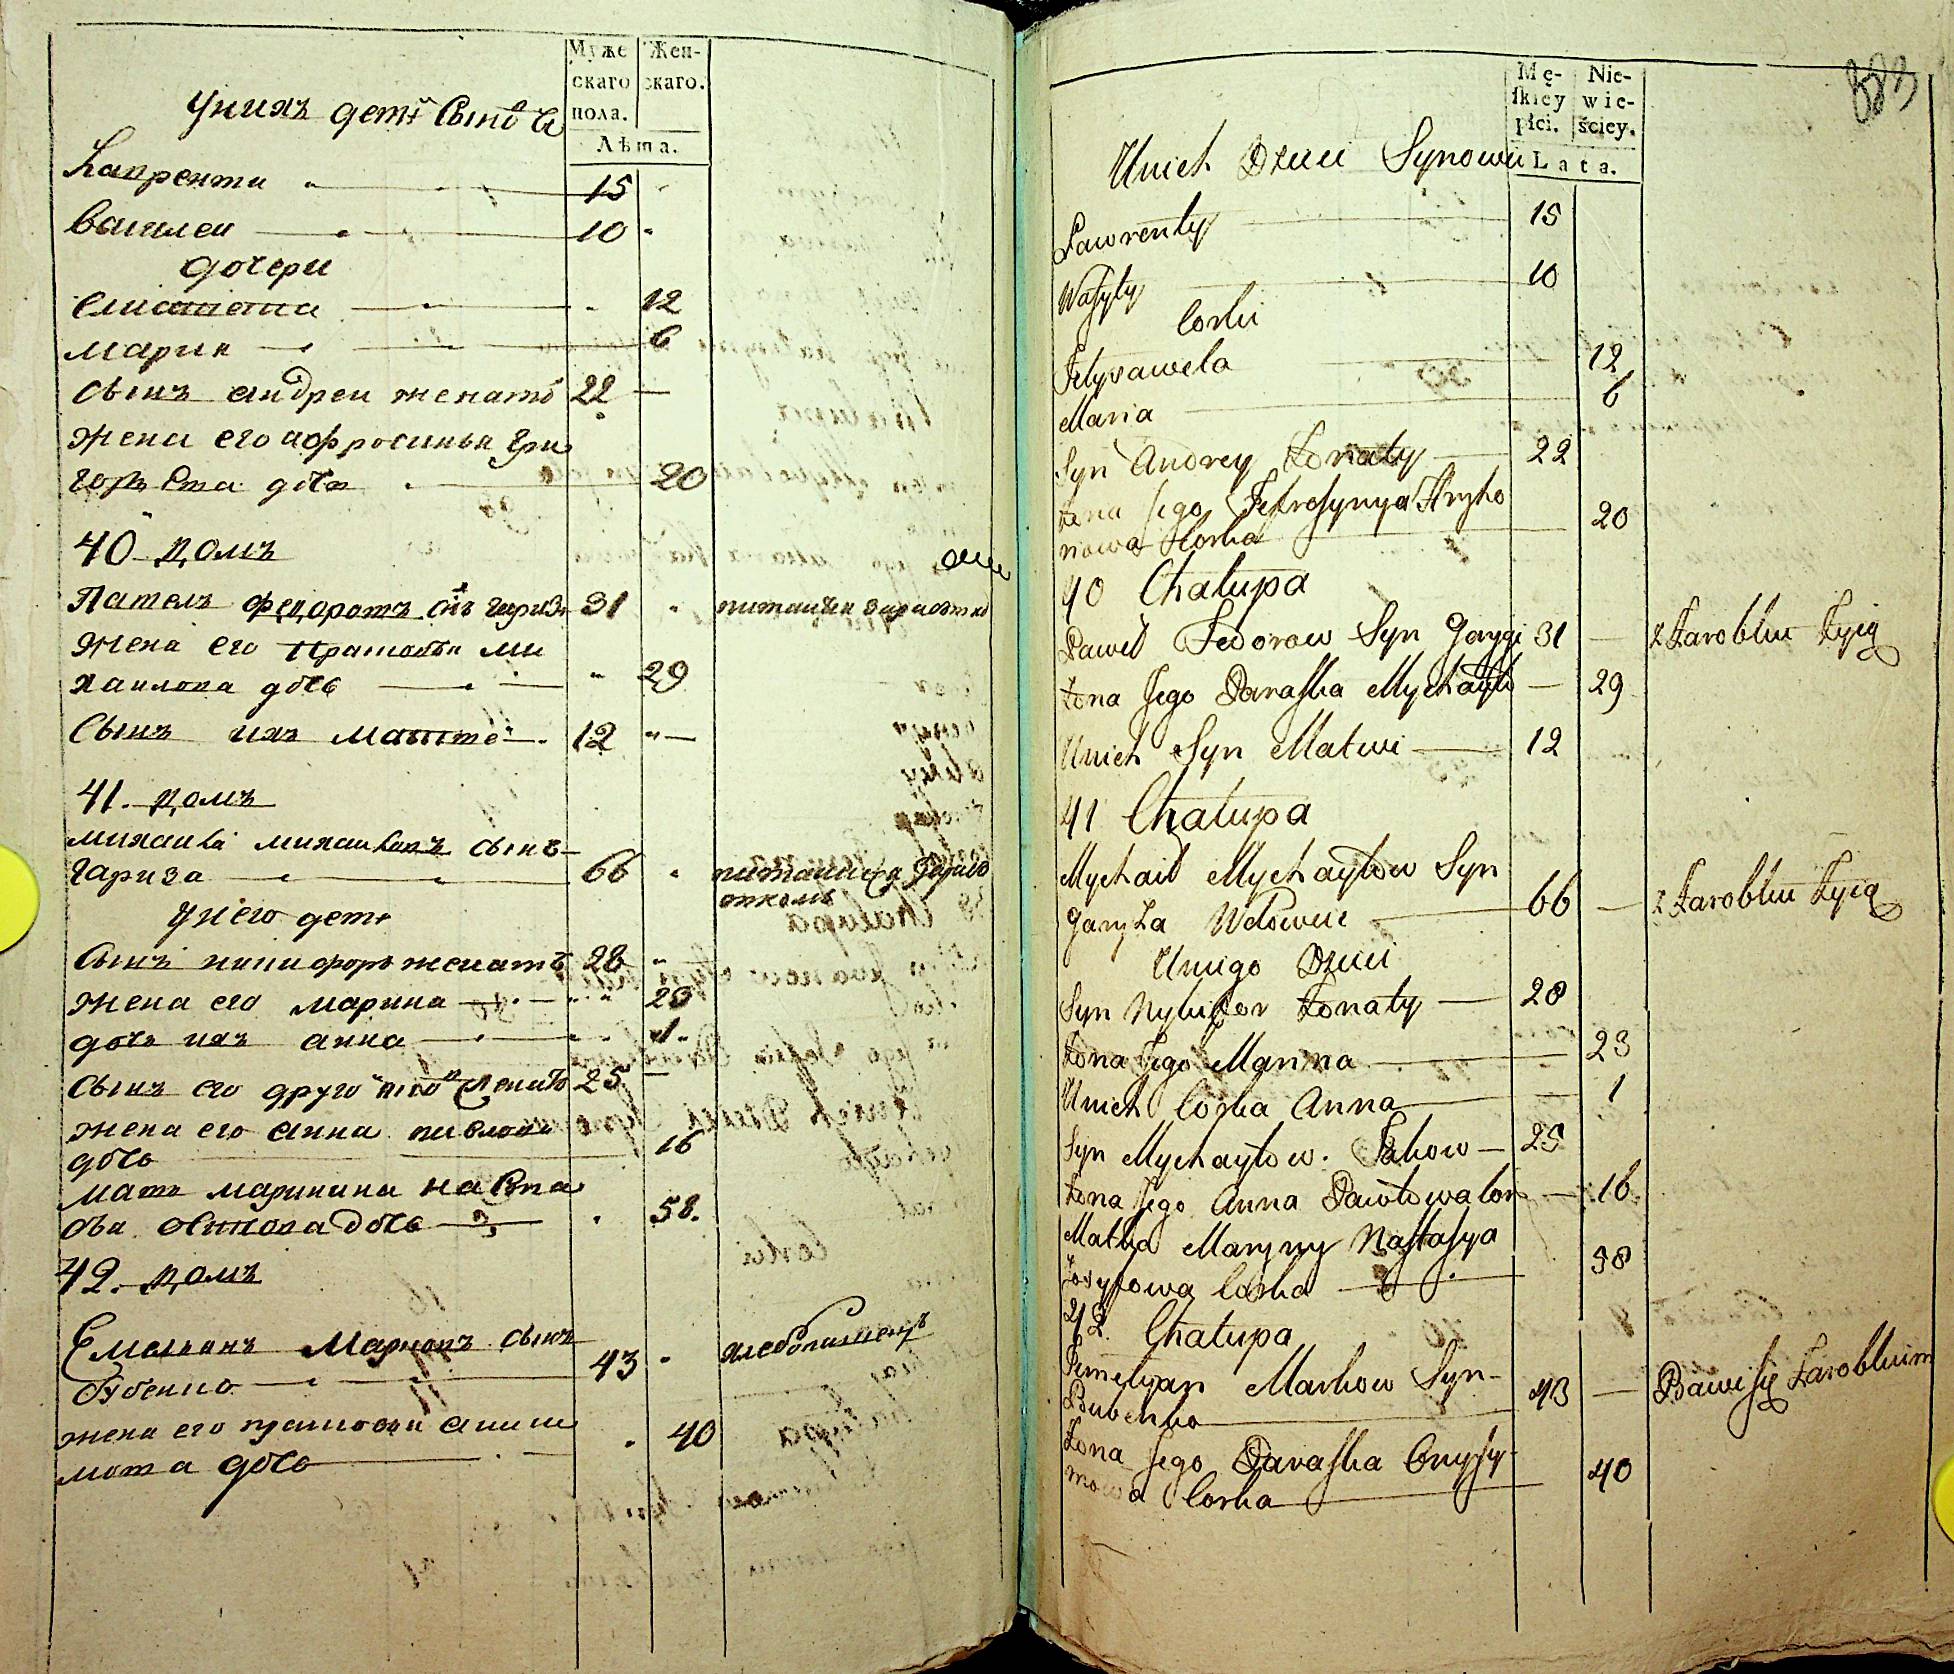 Муже
скаго
пола.
Жен-
скаго.
Лѣта.
Униxъ дети Сынов
Лаврентий 15
Василей 10
дочери
Елисавета 12
Мария 6
Сынъ андреи женатъ 22
Жена его афросинья Гри
горьева дочь 20
40 домъ
Павелъ Федоровъ сынъ 31
Жена его Прасковья Ми
хаилова дочь 29
Сынъ ихъ Матвеи 12
41. домъ
Михаила Михаиловъ сынъ
Гариза 66
питаица Зарабо
откомъ
У него дети
Сынъ никифоръ женатъ 28
Жена его марина 23
дочь ихъ анна 1
Сынъ его друго женатъ 25
Жена его анна павлова
дочь 16
мать маринина наста
сья осипова дочь 58.
42. домъ
Емельянъ Марковъ сынъ
Бубенко 43 хлебопашецъ
жена его прасковья аниси
мова дочь 40
883
Mę-
ſkiey
płci.
Nie-
wie-
ściey.
Lata.
Unich Dzieci Synowie
Lawrenty 15
Wasyly 10
Corki
Jelyzaweta 12
Maria 6
Syn Andrey Żonaty 22
Żona Jego Jefrosynya Hryho
riowa Corka 20
40 Chałupa
Paweł Fedorow Syn 31 z Zarobku Żyią
Żona Jego Paraska Mychayło 29
Unich Syn Matwi 12
41 Chałupa
Mychaił Mychayłow Syn
Garyza Wdowiec 66 z Zarobku Żyią
Uniego Dzieci
Syn Nykifor Żonaty 28
Żona Jego Maryna 23
Unich Corka Anna 1
Syn Mychayłow Jakow 25
Żona Jego Anna Pawłowa Cor 16
Matka Maryny Nastasya
Josypowa Corka 58
42. Chałupa
Jemelyan Markow Syn
Bubenko 43 Bawi się Zarobkiem
Żona Jego Paraska Onysy-
mowa Corka 40